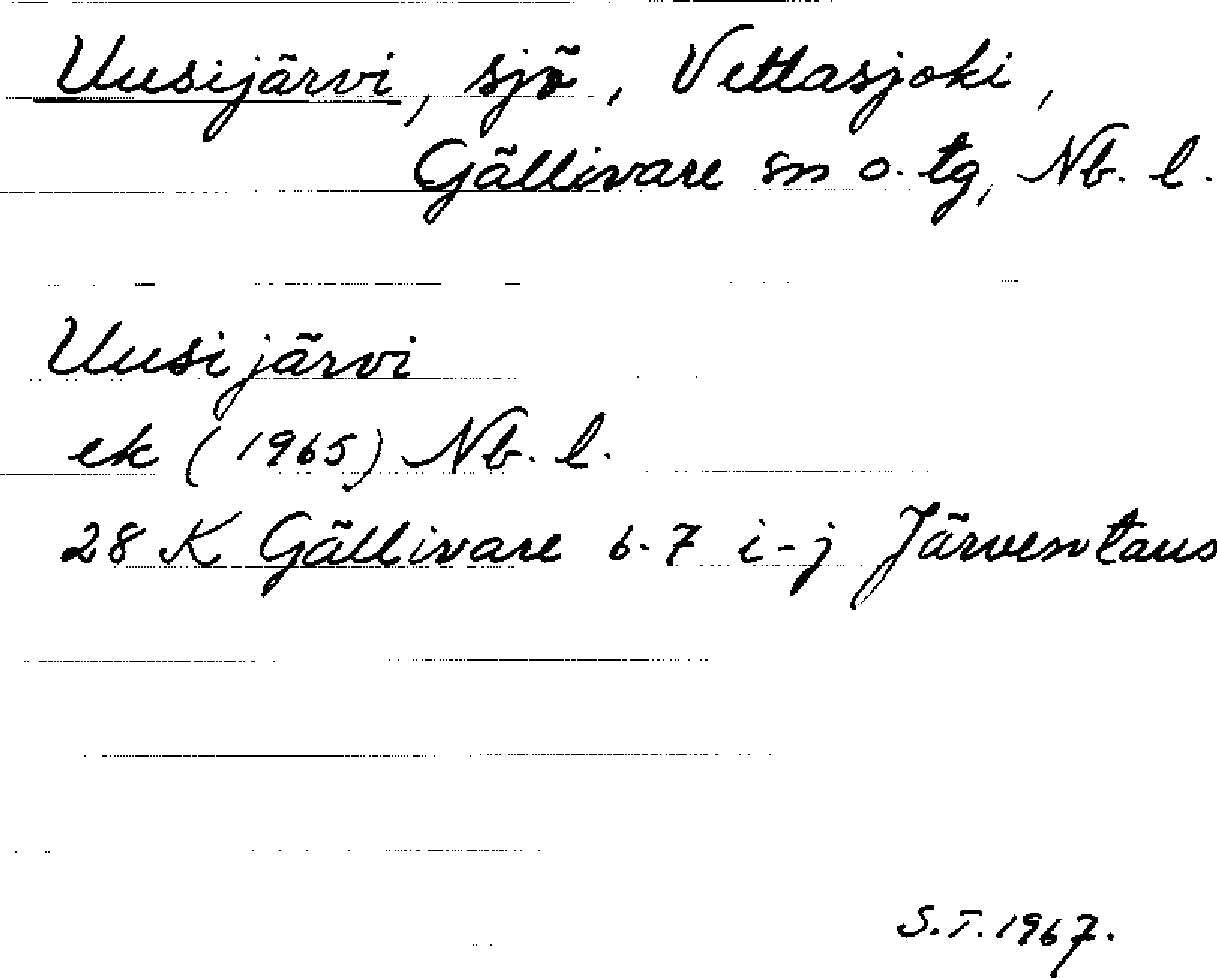 Uusijärvi, sjö, Vettasjoki,
Gällivare sn o. tg, Nb. l.
Uusijärvi
ek (1965) Nb. l.
28 K Gällivare 6-7 i-j Järventaus
S.T. 1967.